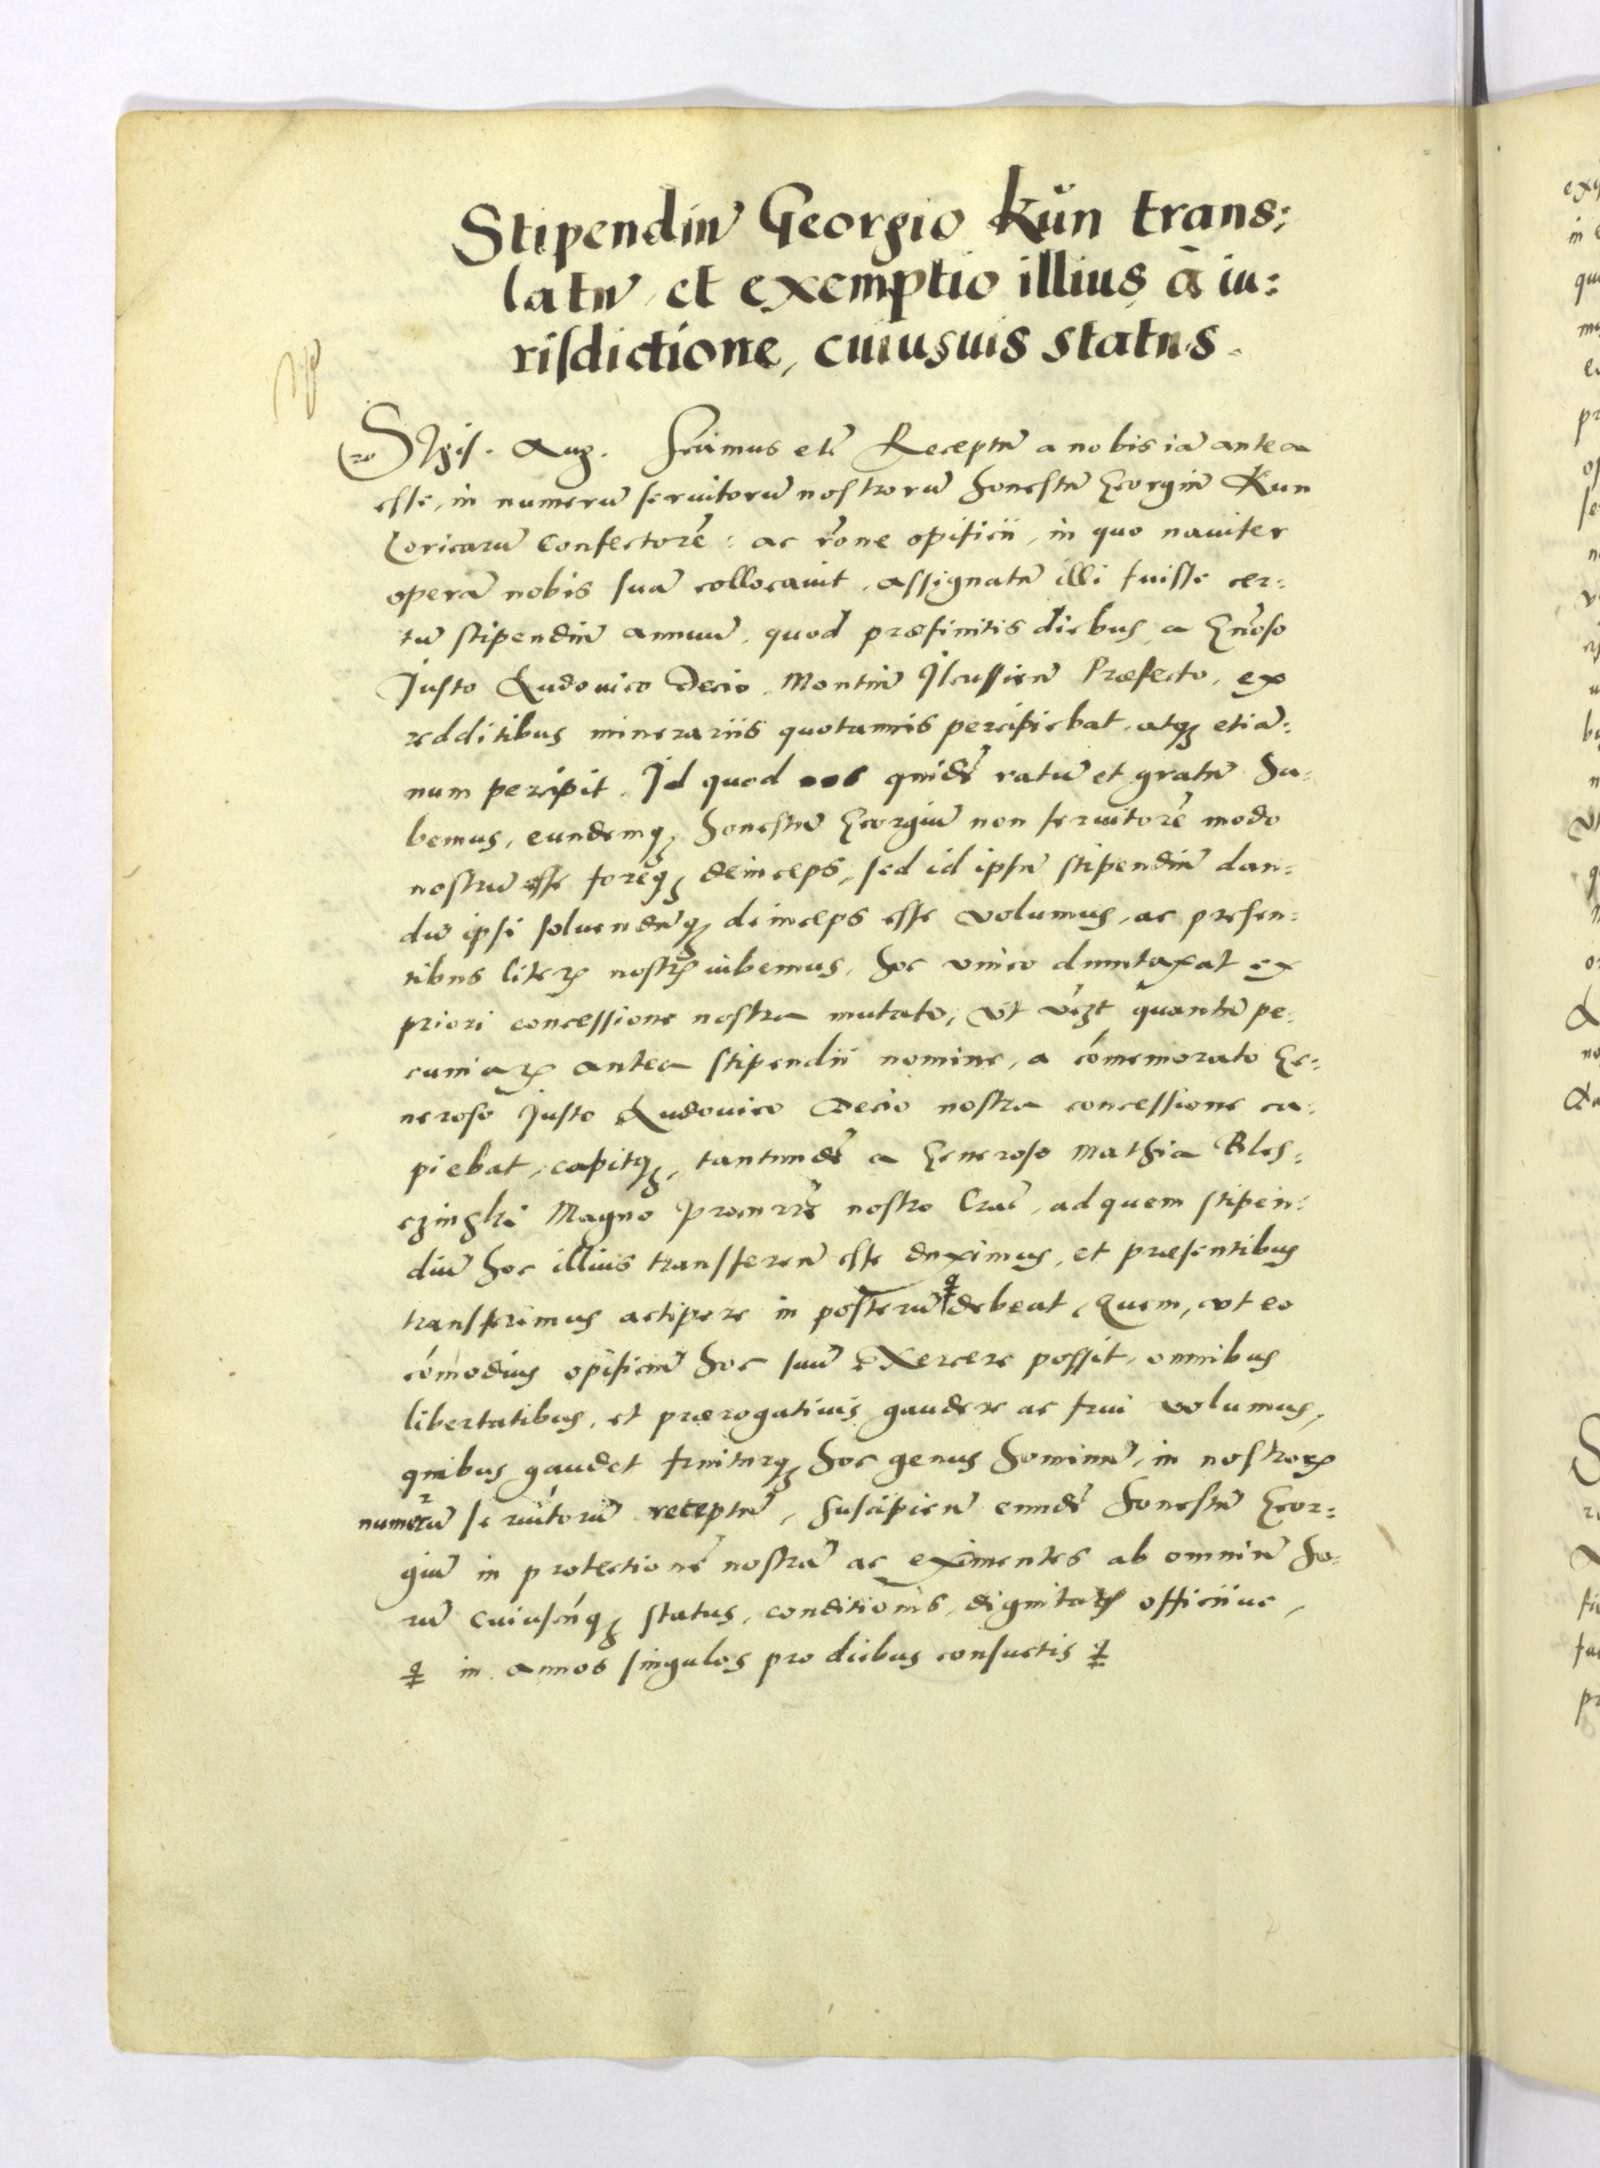 Stipendiū Georgio Kün trans:
latū et exemptio illius à iu:
risdictione, cuiusuis status.
Sigis. Aug. Scimus etc̄ Receptū a nobis iā antea
esse, in numerū seruitorū nostrorū honestū Georgiū Kun
Loricarū Confectorē: ac rōne opificii, in quo nauiter
operā nobis suā collocauit, assignatū illi fuisse cer:
tū stipendiū annuū, quod præfinitis diebus, a Gn̄oso
Justo Ludouico Decio, Montiū Ilcussien̄ Præfecto, ex
redditibus minerariis quotannis percipiebat, atq; etiā:
num percipit. Id quod nos quidē ratū et gratū ha:
bemus, eundemq; honestū Georgiū non seruitorē modo
nostrū esse foreq; deinceps, sed id ipsū stipendiū dan:
dū ipsi soluendūq; deinceps esse volumus, ac presen:
tibus literꝭ nostrꝭ iubemus, hoc vnico duntaxat ex
priori concessione nostra mutato, vt vczt quantū pe:
cuniaꝝ antea stipendii nomine, a cōmemorato Ge:
neroso Justo Ludouico Decio nostra concessione ca:
piebat, capitq;, tantundē a Generoso Mathia Bles:
czinski Magno Procurrē nostro Crac̄, ad quem stipen:
diū hoc illius transferen̄ esse duximus, et præsentibus
transferimus accipere in posterū debeat, Quem, vt eo
cōmodius opificiū hoc suū exercere possit, omnibus
libertatibus, et prærogatiuis gaudere ac frui volumus,
quibus gaudet fruiturq; hoc genus hominū, in nostroꝝ
numerū seruitorū receptū, Suscipien̄ eundē honestū Geor:
giū in protectionē nostrā ac eximentes ab omniū fo:
rū cuiuscūq; status, conditionis, dignitatꝭ officiiue,
in annos singulos pro diebus consuetis